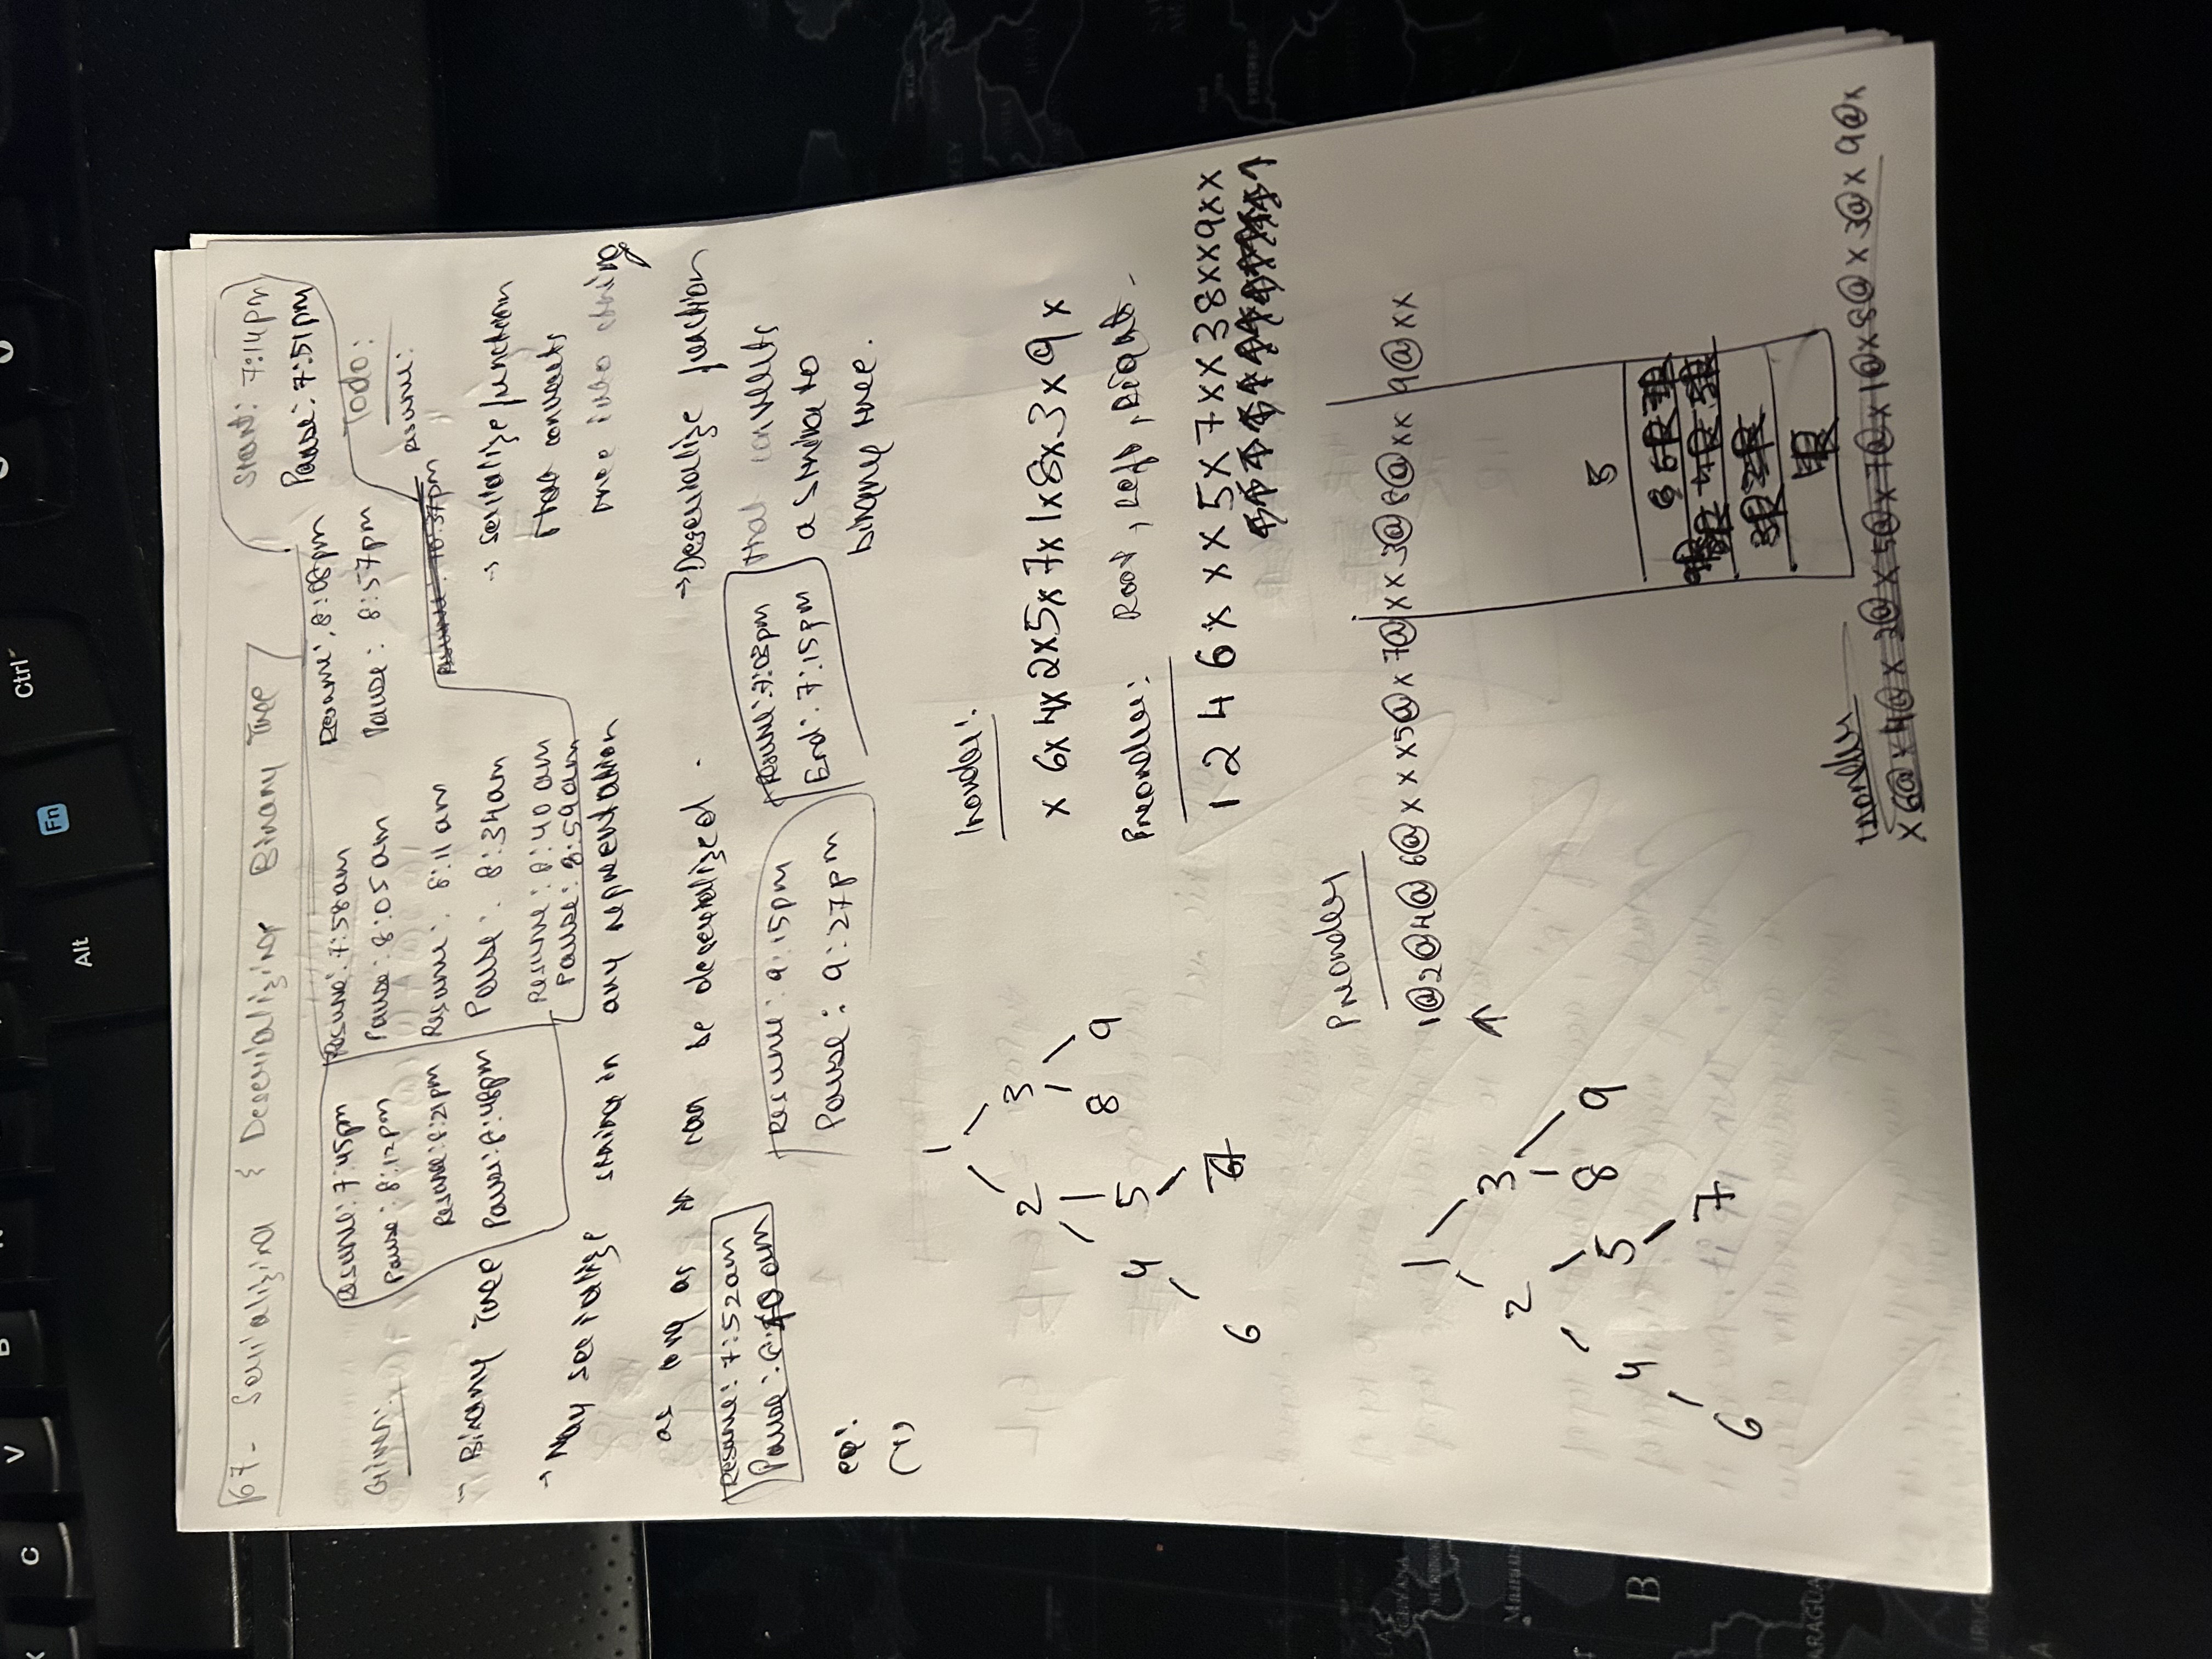 X C V B Alt Fn Ctrl
67- Serializing & Deserializing Binary Tree
Start: 7:14pm
Pause: 7:51pm
Given:
Resume: 7:45pm
Pause: 8:12pm
Resume: 8:21pm
Pause: 8:48pm
Resume: 7:58am
Pause: 8:05am
Resume: 8:11am
Pause: 8:34am
Resume: 8:40am
Pause: 8:59am
Resume: 8:08pm
Pause: 8:57pm
Resume: 10:37pm
Todo:
resume:
→ Binary Tree
→ May serialize string in any representation
as long as it can be deserialized.
→ serialize function
that converts
tree into string
→ Deserialize function
that converts
a string to
binary tree.
Resume: 7:52am
Pause: 8:10am
Resume: 9:15pm
Pause: 9:27pm
Resume: 7:03pm
End: 7:15pm
eg:
(1)
1
2 3
4 5 8 9
6 7
Inorder:
x 6x 4x 2x5x 7x 1x8x 3x 9x
Preorder: Root, Left, Right
1 2 4 6x x x 5x 7xx 38xx9xx
Preorder
1@2@4@6@xxx5@x7@xx3@8@xx9@xx
1
2 3
4 5 8 9
6 7
6R 7R
9R 8R 4R 5R
3R 2R
1R
Inorder
x6@x4@x2@x5@x7@x1@x8@x3@x9@x
KEY
Manaus
B
ARAGUA
URUG